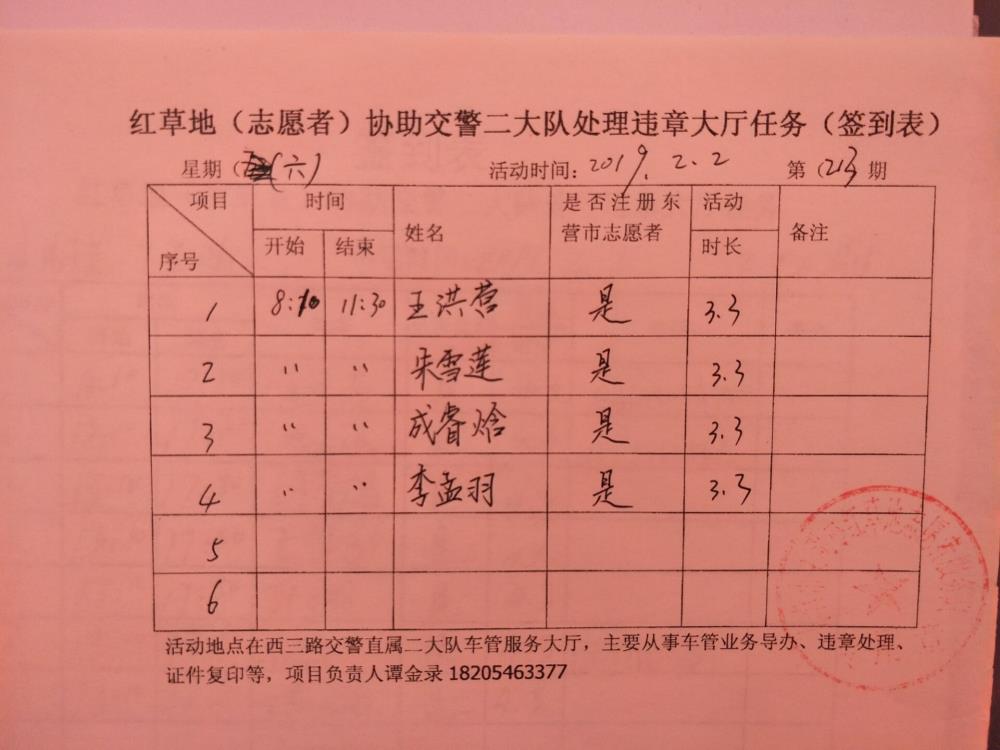 红草地（志愿者）协助交警二大队处理违章大厅任务（签到表）
星期（六） 活动时间：2019.2.2 第（213期
项目 时间 姓名 是否注册东营市志愿者 活动时长 备注
序号 开始 结束
1 8:10 11:30 王洪营 是 3.3
2 〃 〃 宋雪莲 是 3.3
3 〃 〃 成睿焓 是 3.3
4 〃 〃 李孟羽 是 3.3
5
6
活动地点在西三路交警直属二大队车管服务大厅，主要从事车管业务导办、违章处理、
证件复印等，项目负责人谭金录 18205463377